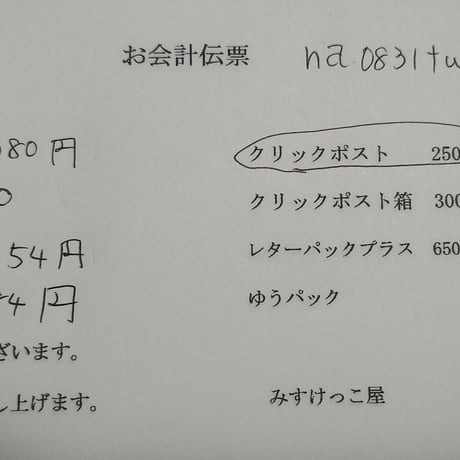 お会計伝票 na.0831tu
80円 クリックポスト 250
0 クリックポスト箱 300
54円 レターパックプラス 650
4円 ゆうパック
ざいます。
し上げます。 みすけっこ屋